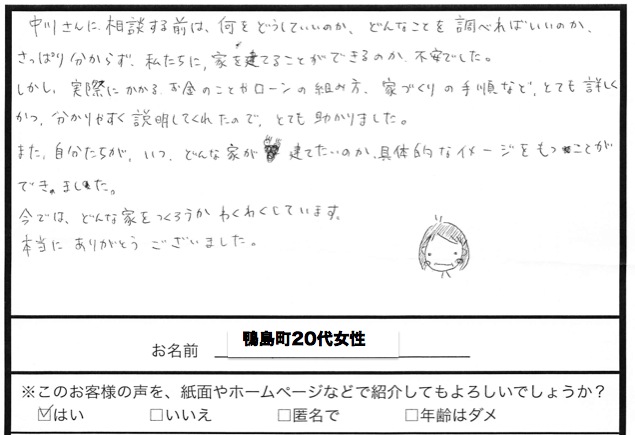 中川さんに相談する前は、何をどうしていいのか、どんなことを調べればいいのか、
さっぱり分からず、私たちに、家を建てることができるのか、不安でした。
しかし、実際にかかるお金のことやローンの組み方、家づくりの手順など、とても詳しく
かつ、分かりやすく説明してくれたので、とても助かりました。
また、自分たちが、いつ、どんな家が建てたいのか、具体的なイメージをもつことが
できました。
今では、どんな家をつくろうかわくわくしています。
本当にありがとうございました。
お名前 鴨島町20代女性
※このお客様の声を、紙面やホームページなどで紹介してもよろしいでしょうか？
☑はい □いいえ □匿名で □年齢はダメ